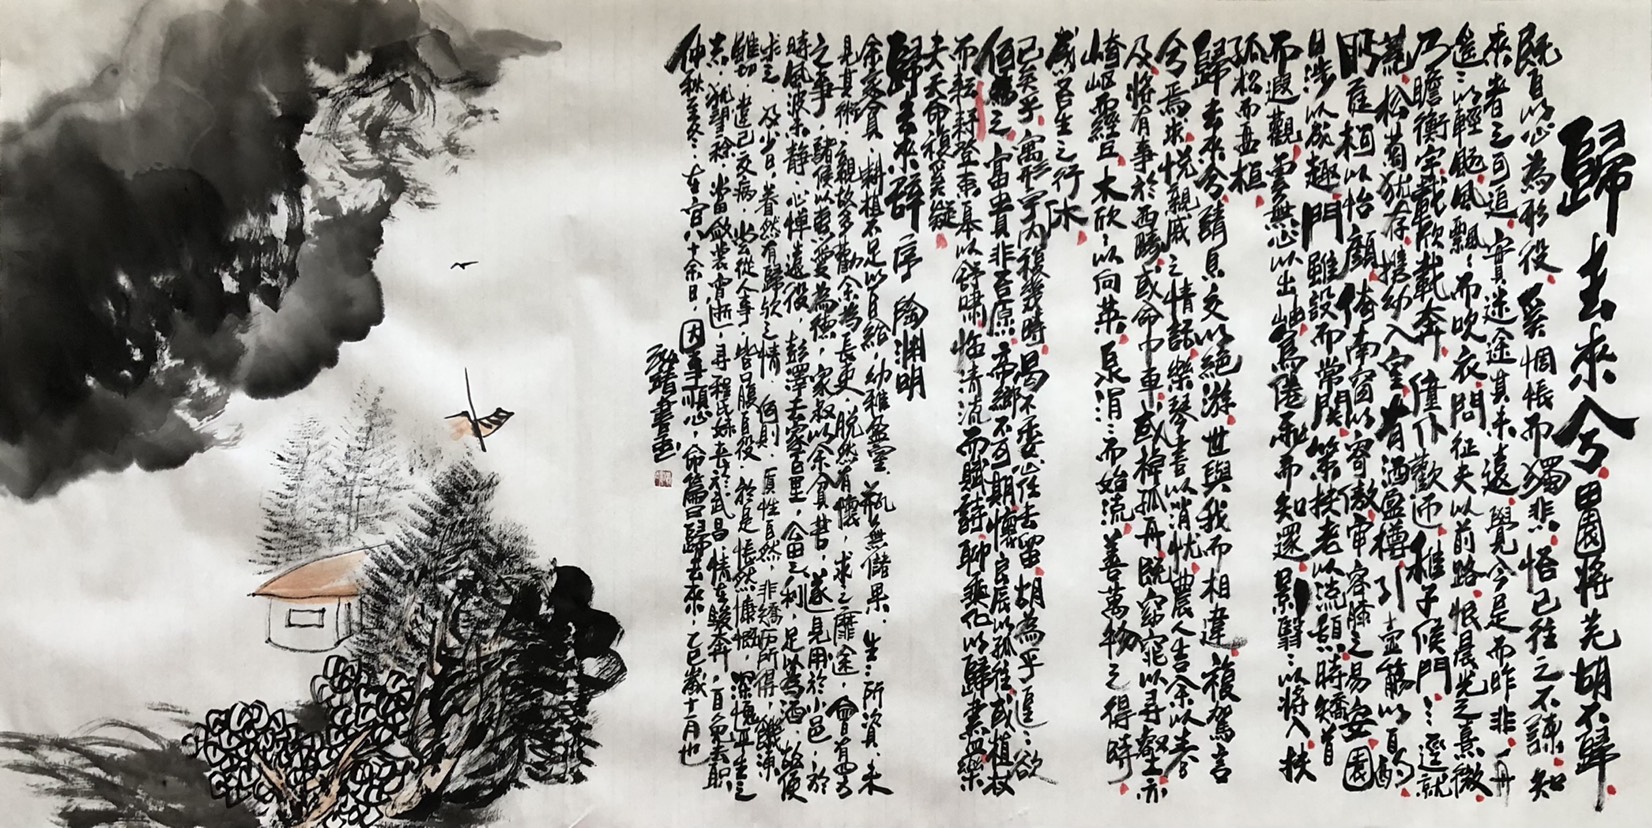 歸去來兮田園將芜胡不歸
既自以心為形役奚惆悵而獨悲悟已往之不諫知
來者之可追實迷途其未遠覺今是而昨非舟
遙〻以輕颺風飄〻而吹衣問征夫以前路恨晨光之熹微
乃瞻衡宇載欣載奔僮仆歡迎稚子候門三逕就
蕪松菊猶存攜幼入室有酒盈樽引壺觴以自酌
眄庭柯以怡顏倚南窗以寄傲審容膝之易安園
日涉以成趣門雖設而常関策扶老以流憩時矯首
而遐觀雲無心以出岫鳥倦飛而知還景翳〻以將入扶
孤松而盘桓
歸去來兮請息交以絕游世與我而相違複駕言
兮焉求悅親戚之情話樂琴書以消忧農人告余以春
及將有事於西疇或命巾車或棹孤舟既窈窕以尋壑亦
崎岖而經丘木欣〻以向荣泉涓〻而始流善萬物之得時
感吾生之行休
已矣乎寓形宇內複幾時曷不委心任去留胡為乎遑〻欲
何為之富貴非吾愿帝鄉不可期懷良辰以孤往或植杖
而耘耔登東皋以舒嘯臨清流而賦詩聊乘化以歸盡樂
夫天命複奚疑
歸去來辞序 陶渊明
余家貧,耕植不足以自給,幼稚盈室,瓶無儲粟,生〻所資,未
見其術,親故多勸余為長吏,脱然有懷,求之靡途,會有四方
之事,諸侯以惠愛為德,家叔以余貧苦,遂見用於小邑,於
時風波未静,心憚遠役,彭澤去家百里,公田之利,足以為酒,故便
求之,及少日,眷然有歸欤之情,何則,質性自然,非矯厉所得,饑凍
雖切,違己交病,尝從人事,皆口腹自役,於是悵然慷慨,深愧平生之
志,猶望一稔,當斂裳宵逝,尋程氏妹丧於武昌,情在駿奔,自免去职
仲秋至冬,在官八十余日,因事順心,命篇曰歸去來,乙巳歲十一月也
書画